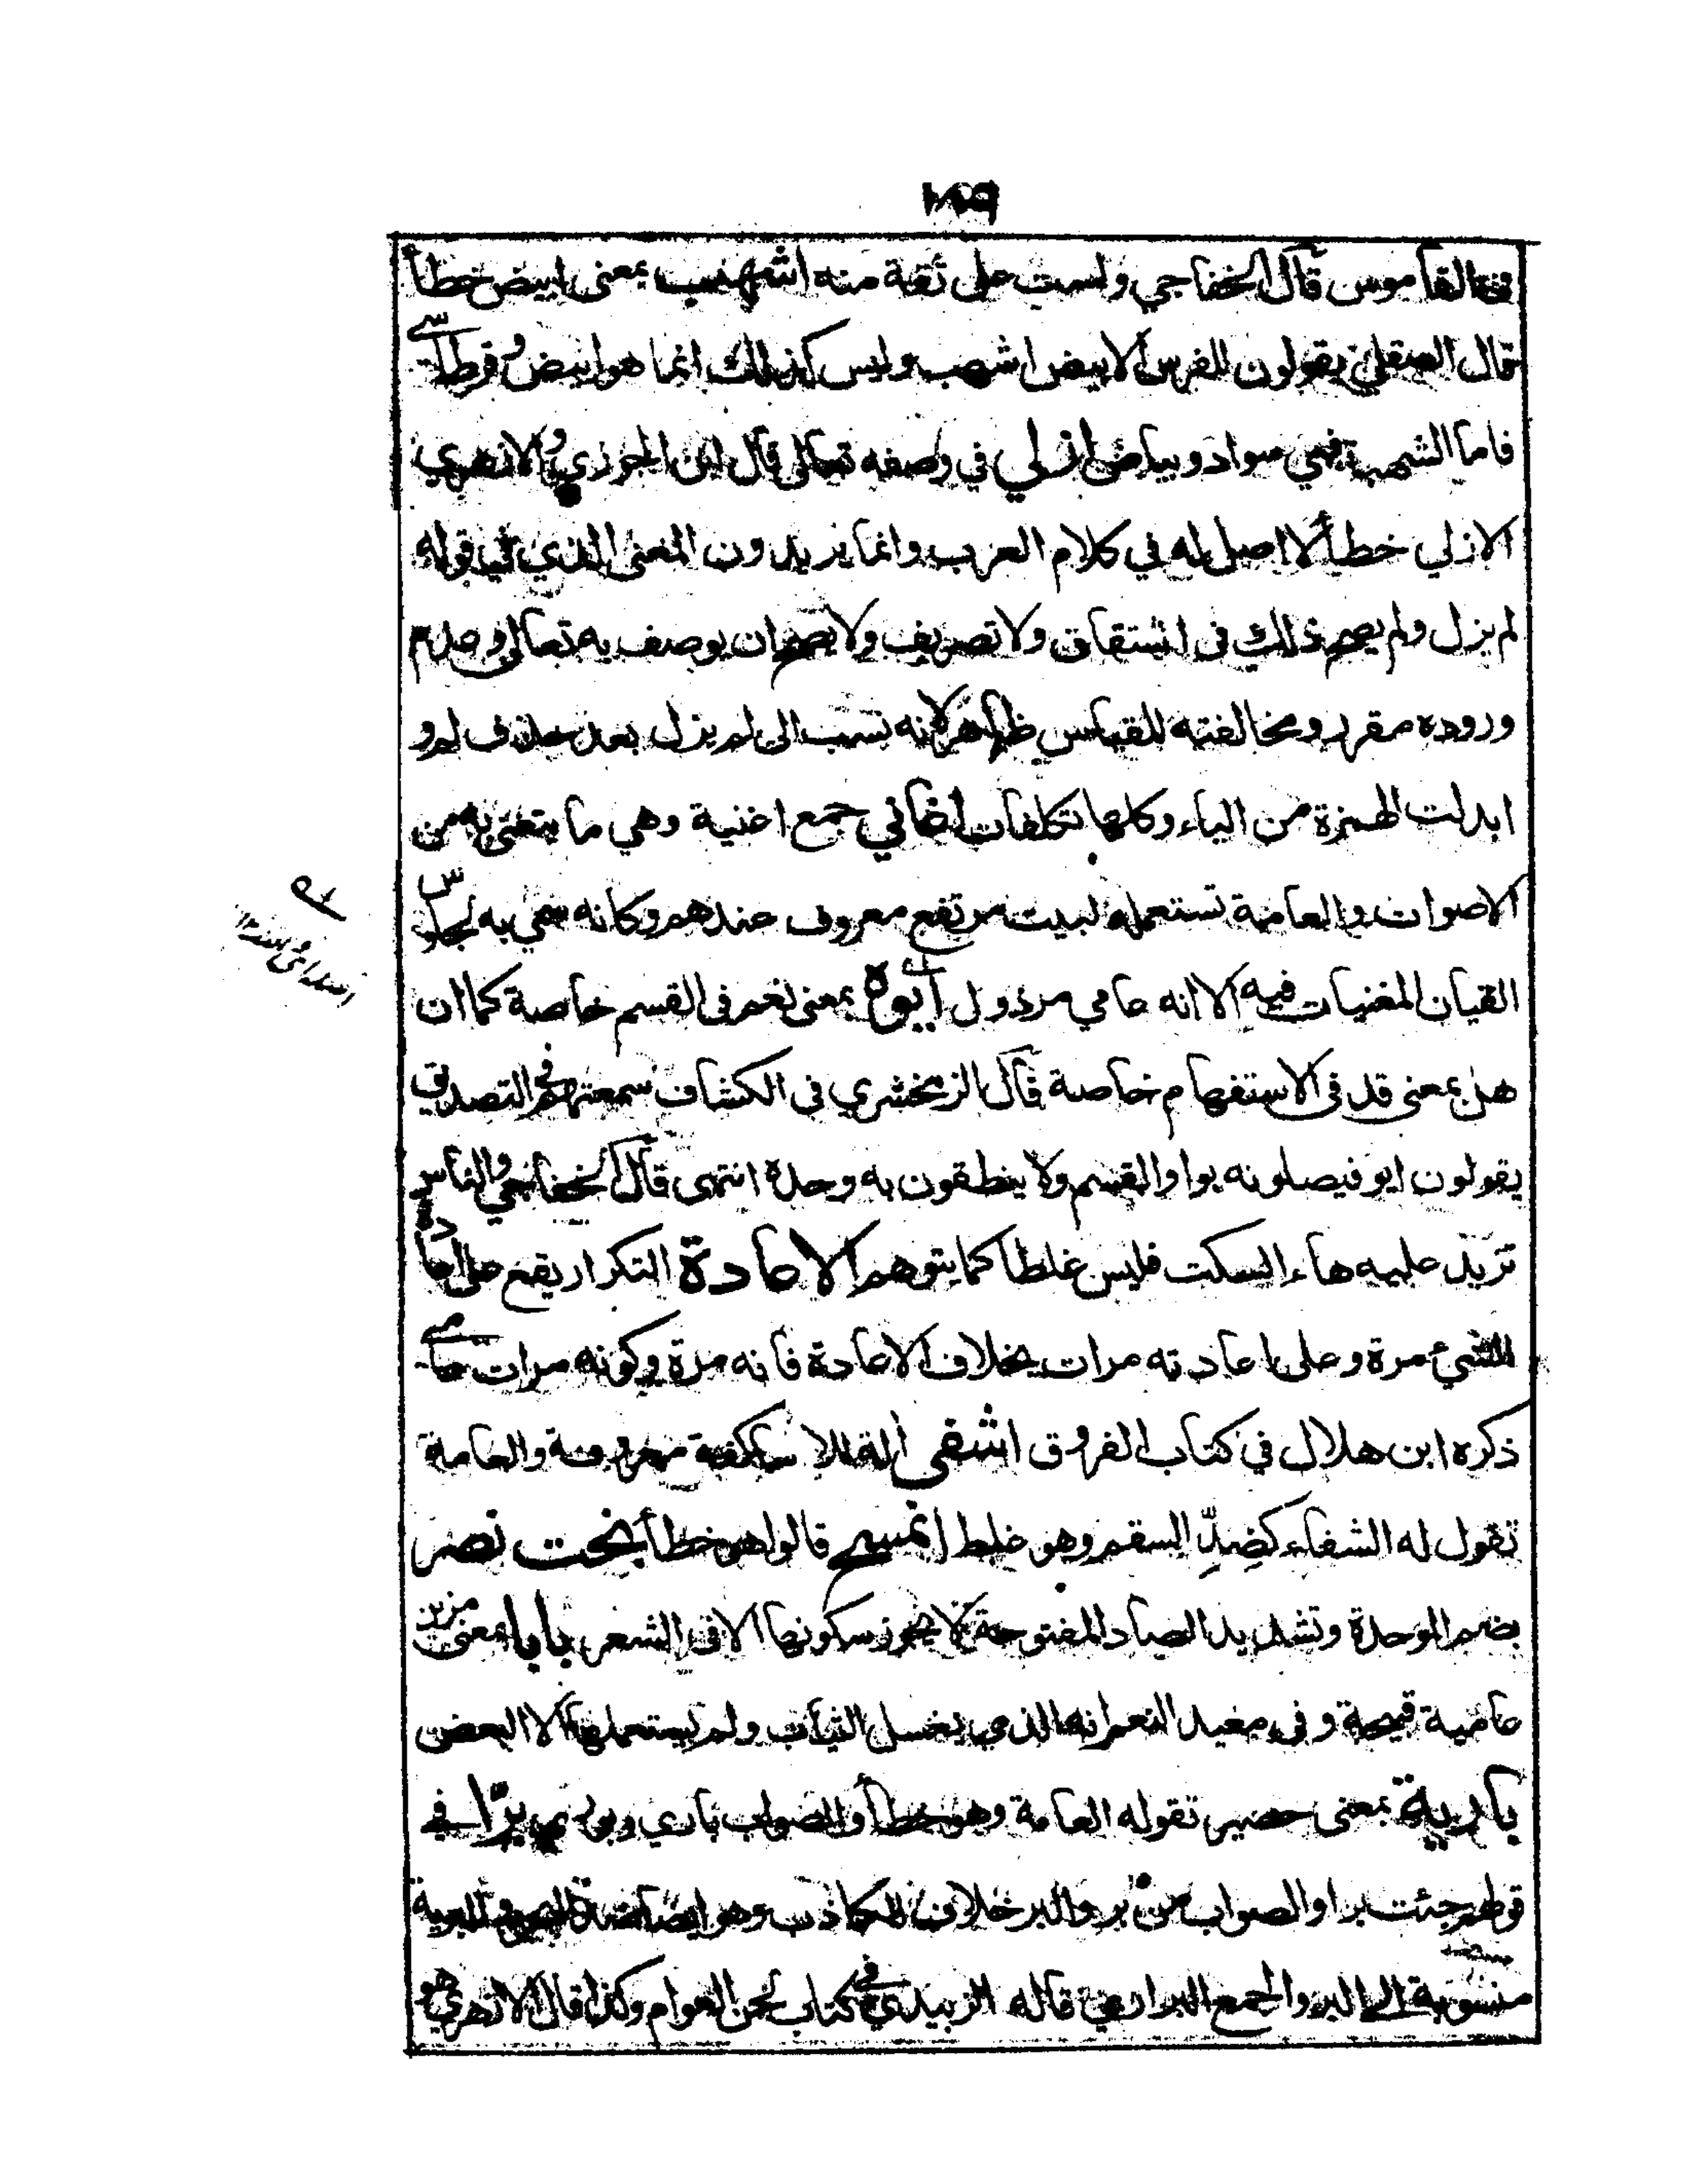 ١٨٩
في القاموس قال الخفاجي ولست على ثقة منه اشهب بمعنى ابيض خطأ
قال الصقلي يقولون للفرس الابيض اشهب وليس كذلك انما هو ابيض وقرطاسي
فاما الشهبة فهي سواد وبياض ازلي في وصفه تعالى قال ابن الجوزي والازهري
الازلي خطأ لا اصل له في كلام العرب وانما يريدون المعنى الذي في قوله
لم يزل ولم يصح ذلك في اشتقاق ولا تصريف ولا يصح ان يوصف به تعالى وعدم
وروده مقرر ومخالفته للقياس ظاهر لانه نسب الى لم يزل بعد حذف لم و
ابدلت الهمزة من الياء وكلها تكلفات اغاني جمع اغنية وهي ما يتغنى به من
الاصوات والعامة تستعمله لبيت مرتفع معروف عندهم وكانه سمي به لجلوس
القيان المغنيات فيه الا انه عامي مرذول ايوه بمعنى نعم في القسم خاصة كما ان
هل بمعنى قد في الاستفهام خاصة قال الزمخشري في الكشاف سمعتهم في التصديق
يقولون ايو فيصلونه بواو القسم ولا ينطقون به وحده انتهى قال الخفاجي والناس
تزيد عليه هاء السكت فليس غلطا كما يتوهم الاعادة التكرار يقع على اعادة
الشيء مرة وعلى اعادته مرات بخلاف الاعادة فانه مرة وكونه مرات عامي
ذكره ابن هلال في كتاب الفروق اشفى الة للاساكفة معروفة والعامة
تقول له الشفاء كضد السقم وهو غلط انمسح قالوا هو خطأ بخت نصر
بضم الموحدة وتشديد الصاد المفتوحة لا يجوز سكونها الا في الشعر بابا بمعنى مزين
عامية قبيحة وفي معيد النعم انه الذي يغسل الثياب ولم يستعملها الا البعض
بارية بمعنى حصير تقوله العامة وهو خطأ والصواب باري وبوري برا في
قولهم جئت برا والصواب من بر والبر خلاف الكاذب وهو ايضا والبرية
منسوبة الى البر والجمع البراري قاله الزبيدي في كتاب لحن العوام وكذا قال الازهري هو